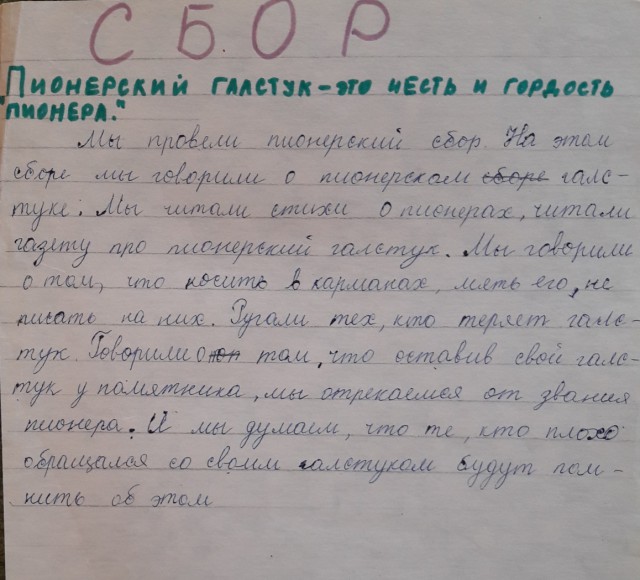 СБОР
"Пионерский галстук-это честь и гордость
пионера."
Мы провели пионерский сбор. На этом
сборе мы говорили о пионерском сборе галс-
туке. Мы читали стихи о пионерах, читали
газету про пионерский галстук. Мы говорили
о том, что носить в карманах, мять его, не
писать на них. Ругали тех, кто теряет галс-
тук. Говорили о том, что оставив свой галс-
тук у памятника, мы отрекаемся от звания
пионера. И мы думаем, что те, кто плохо
обращался со своим галстуком будут пом-
нить об этом